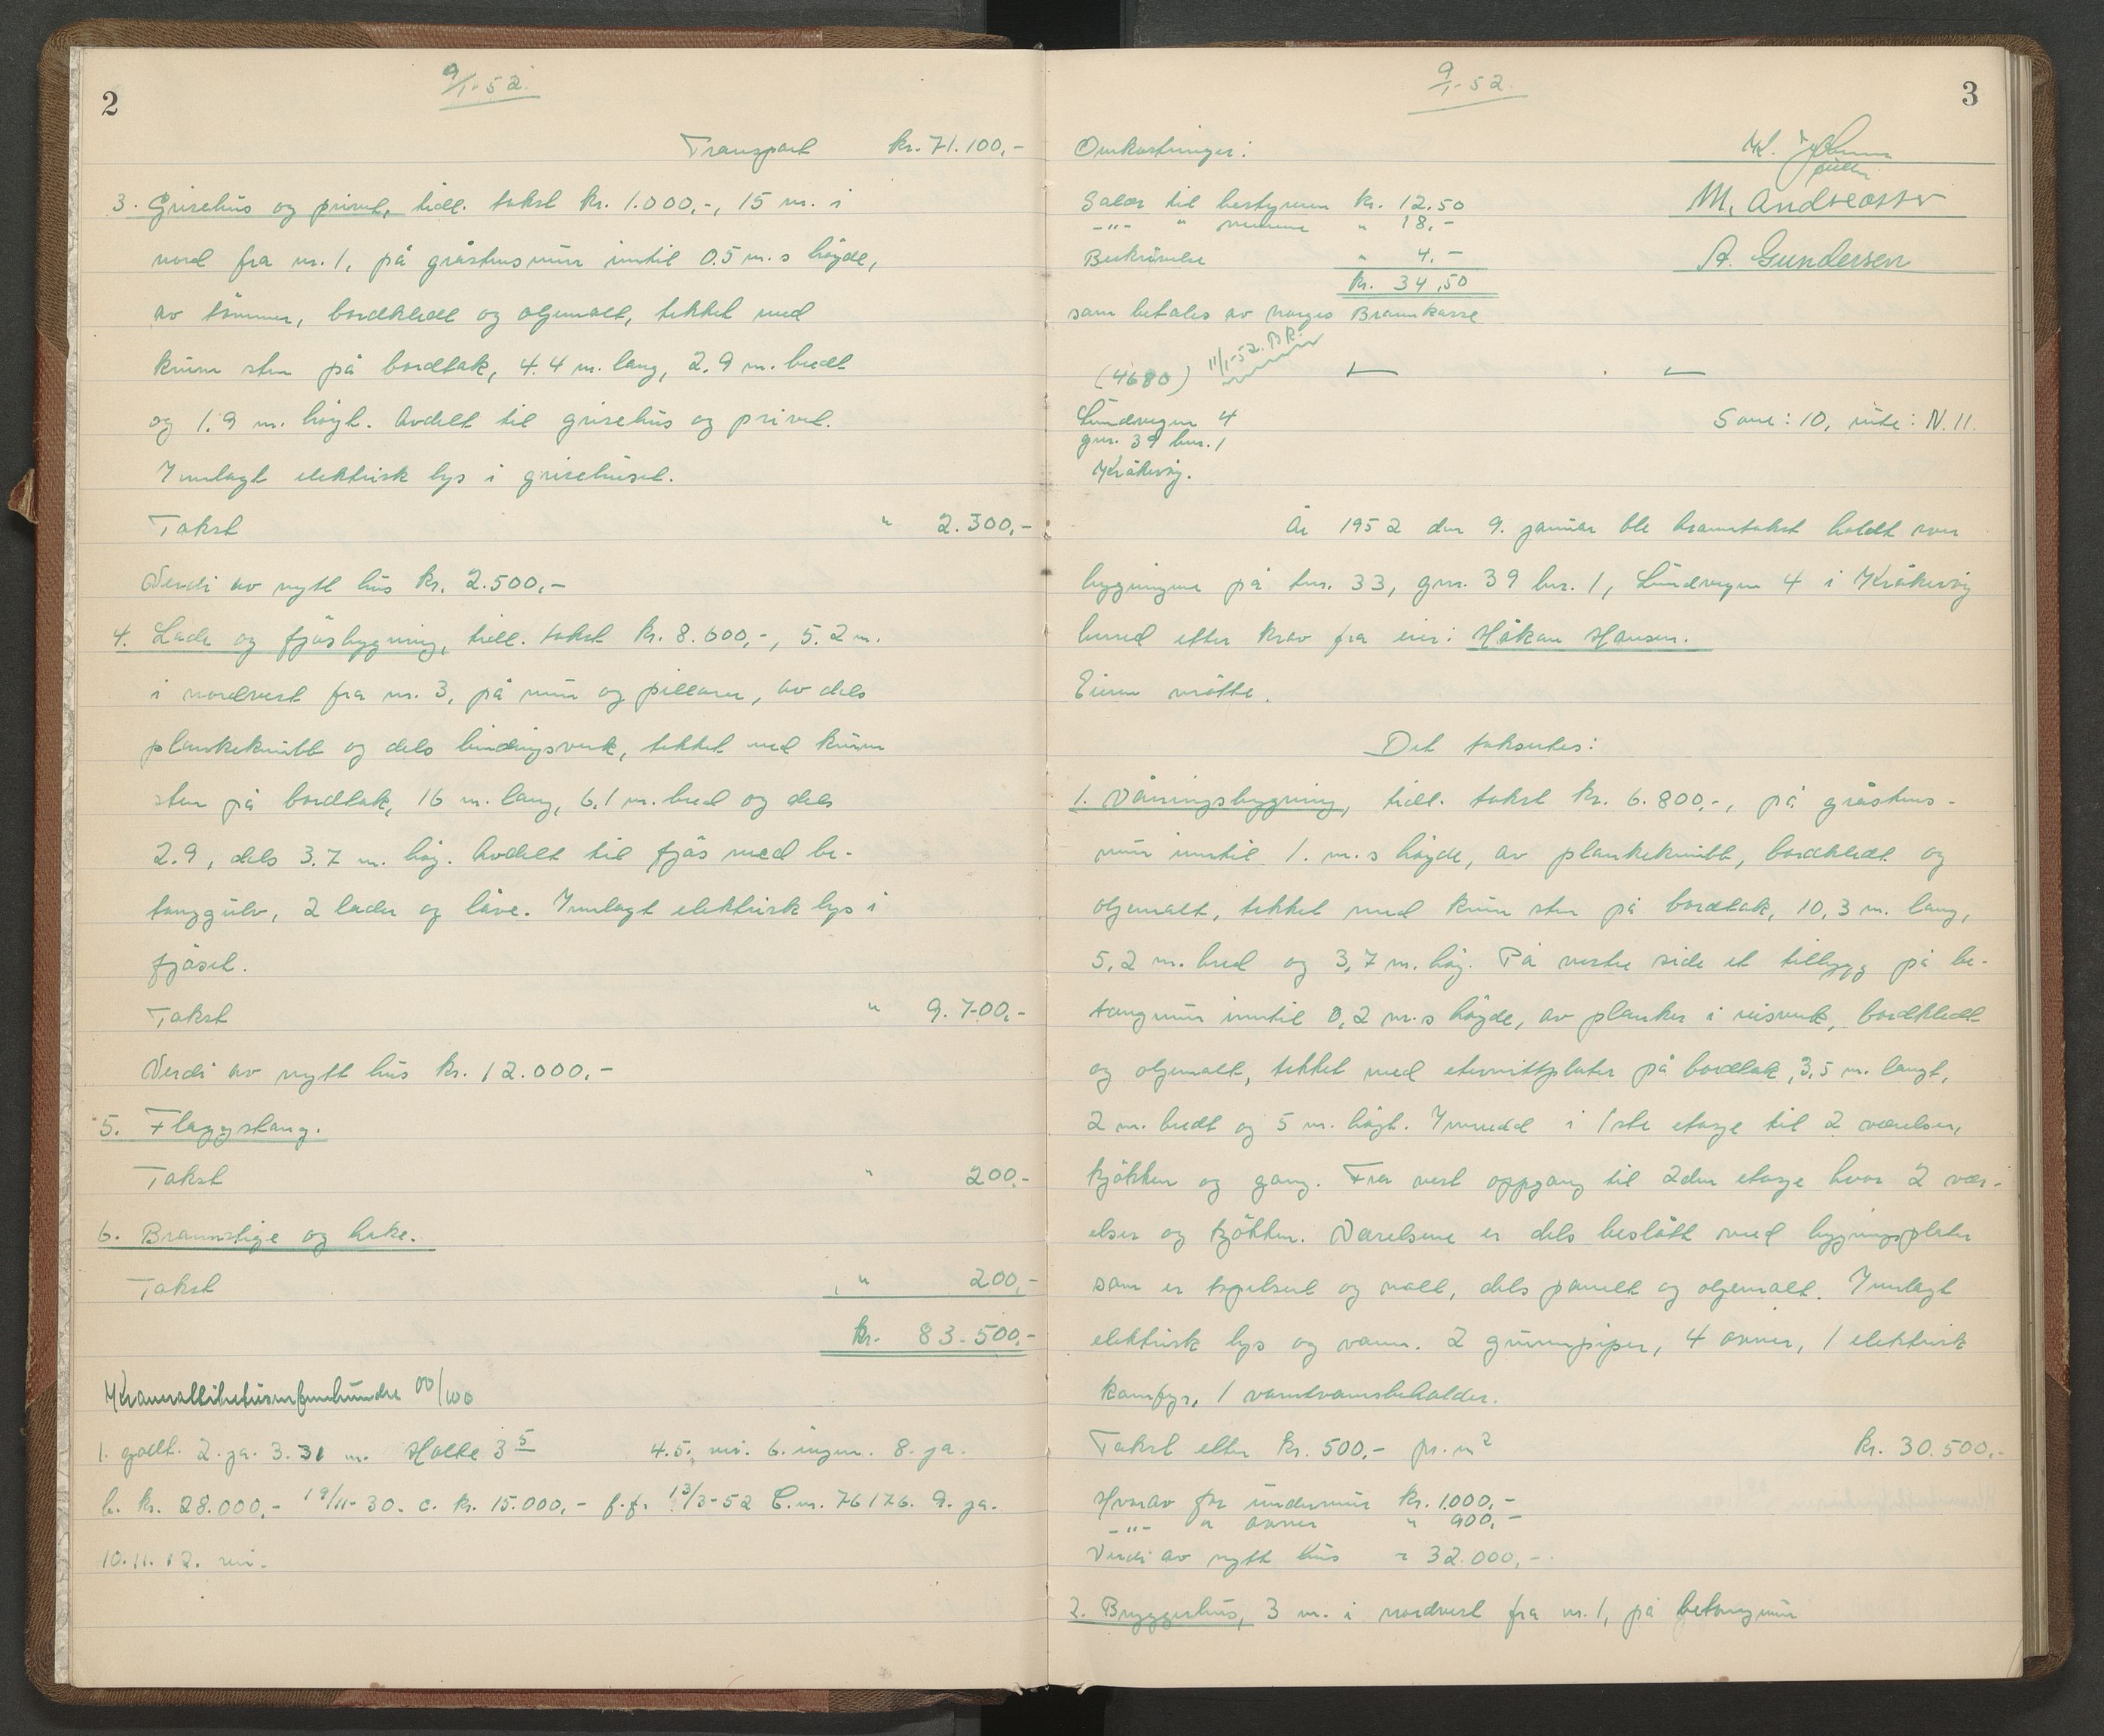 2
9/1-52.
Transport kr. 71.100,-
3. Grisehus og privet, tidl. takst kr. 1.000,-, 15 m. i
nord fra nr. 1, på gråstensmur inntil 0.5 m.s höyde,
av tömmer, bordkledt og oljemalt, tekket med
krum sten på bordtak, 4.4 m. lang, 2.9 m. bredt
og 1.9 m. höyt. Avdelt til grisehus og privet.
Innlagt elektrisk lys i grisehuset.
Takst " 2.300,-
Verdi av nytt hus kr. 2.500,-
4. Lade og fjösbygning, tidl. takst kr. 8.600,-, 5.2 m.
i nordvest fra nr. 3, på mur og pillarer, av dels
plankeknubb og dels bindingsverk, tekket med krum
sten på bordtak, 16 m. lang, 6,1 m. bred og dels
2.9, dels 3.7 m. höy. Avdelt til fjös med be-
tonggulv, 2 lader og låve. Innlagt elektrisk lys i
fjöset.
Takst " 9.700,-
Verdi av nytt hus kr. 12.000,-
5. Flaggstang.
Takst " 200,-
6. Brannstige og hake.
Takst " 200,-
kr. 83.500,-
Kroneråttitretusenfemhundre 00/100
1. godt. 2. ja. 3. 31 m. Holte 3 5 4.5. nei. 6. ingen. 8. ja.
b. kr. 28.000,- 19/11-30. c. kr. 15.000,- f.f. 13/3-52 C.nr. 76176. 9. ja.
10. 11. 12. nei.
3
9/1-52.
Omkostninger:
Salær til bestyreren kr. 12,50
-"- " mennene " 18,-
Beskrivelse " 4,-
kr. 34,50
som betales av Norges Brannkasse
M. Andreassen
A. Gundersen
(4680) 11/1-52. BR.
Lundvegen 4
gnr. 39 bnr. 1
Kråkevig.
Sone: 10, rute: N. 11.
År 1952 den 9. januar ble branntakst holdt over
bygningene på bnr. 33, gnr. 39 bnr. 1, Lundvegen 4 i Kråkevig
herred etter krav fra eier: Håkon Hansen.
Eieren mötte.
Det taksertes:
1. Våningsbygning, tidl. takst kr. 6.800,-, på gråstens-
mur inntil 1. m.s höyde, av plankeknubb, bordkledt og
oljemalt, tekket med krum sten på bordtak, 10,3 m. lang,
5,2 m. bred og 3,7 m. höy. På vestre side et tilbygg på be-
tongmur inntil 0,2 m.s höyde, av planker i reisverk, bordkledt
og oljemalt, tekket med eternittplater på bordtak, 3,5 m. langt,
2 m. bredt og 5 m. höyt. Innredd i 1ste etasje til 2 værelser,
kjökken og gang. Fra vest oppgang til 2den etasje hvor 2 vær-
elser og kjökken. Værelsene er dels beslått med bygningsplater
som er tapetsert og malt, dels panelt og oljemalt. Innlagt
elektrisk lys og vann. 2 grunnpiper, 4 ovner, 1 elektrisk
komfyr, 1 varmtvannsbeholder.
Takst etter kr. 500,- pr. m2 kr. 30.500,-
Hvorav for undermur kr. 1.000,-
-"- " ovner " 900,-
Verdi av nytt hus " 32.000,-
2. Bryggerhus, 3 m. i nordvest fra nr. 1, på betongmur